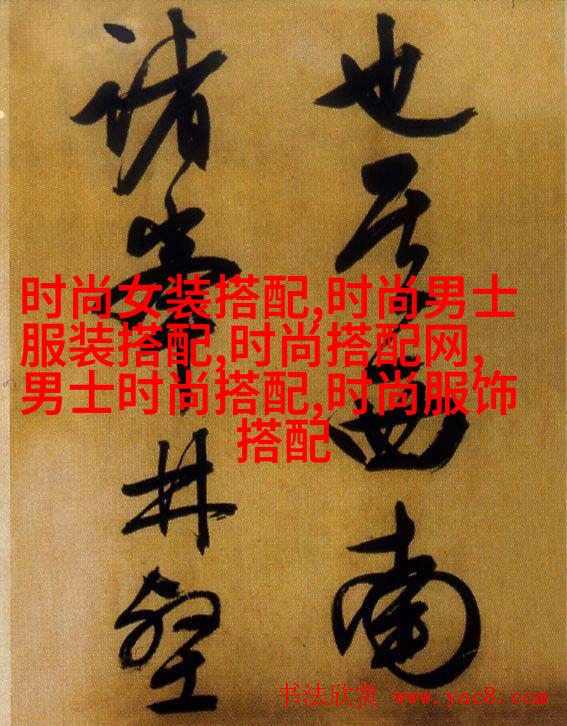 也其西南
諸峯林壑
时尚女装搭配,时尚男士
服装搭配,时尚搭配网,
男士时尚搭配,时尚服饰
搭配
书法欣赏 www.yac8.com